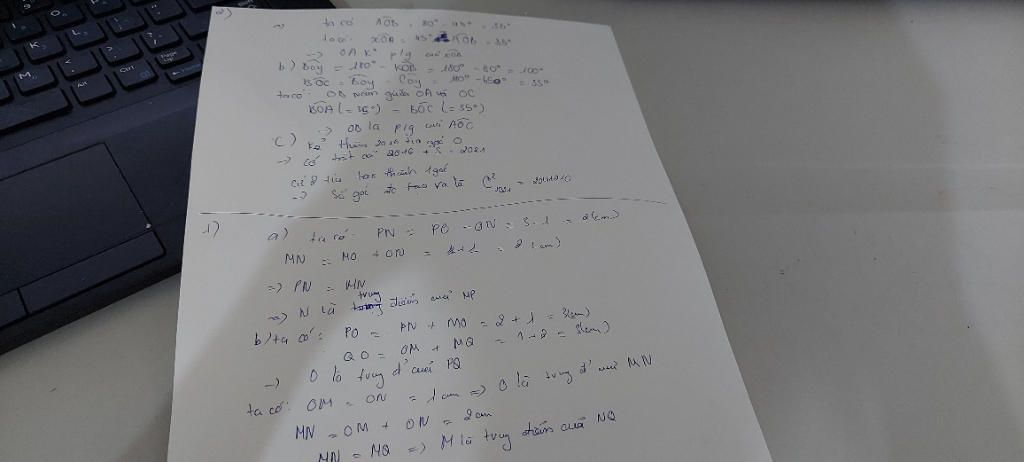 2)
=> ta có AOB = 80° - 45° = 35°
ta có: xOA = 45° ≠ AOB = 35°
-> OA k° p/g của xOB
b) BOy = 180° - xOB = 180° - 80° = 100°
BOC = BOy - COy = = 35°
ta có: OB nằm giữa OA và OC
BOA (= 35°) = BOC (= 35°)
-> OB là p/g của AOC
C) Kẻ thêm 2016 tia gốc O
-> có tất cả 2016 + 5 = 2021
cứ 2 tia tạo thành 1 góc
-> Số góc tạo ra là
1)
a) ta có: PN = PO - ON = 3 - 1 = 2(cm)
MN = MO + ON = 1 + 1 = 2 (cm)
=> PN = MN
=> N là trung điểm của MP
b) ta có: PO = PN + MO = 2 + 1 = 3(cm)
QO = OM + MQ = 1 + 2 = 3(cm)
-> O là trung đ' của PQ
ta có: OM = ON = 1 cm => O là trung đ' của MN
MN = OM + ON = 2 cm
MN = MQ => M là trung điểm của NQ